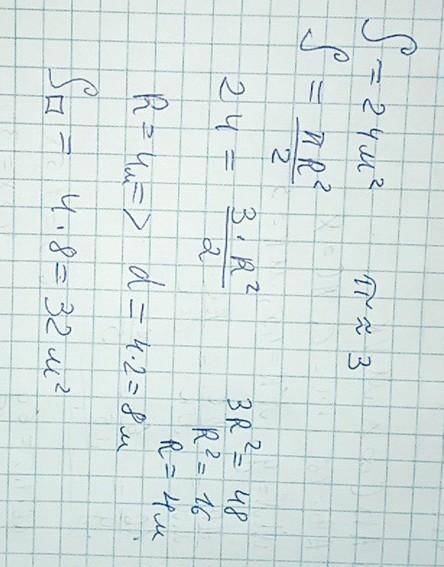 S = 24 м² π ≈ 3
S = πR²/2
24 = 3·R²/2
3R² = 48
R² = 16
R = 4м
R = 4м => d = 4·2 = 8м
S□ = 4·8 = 32 м²